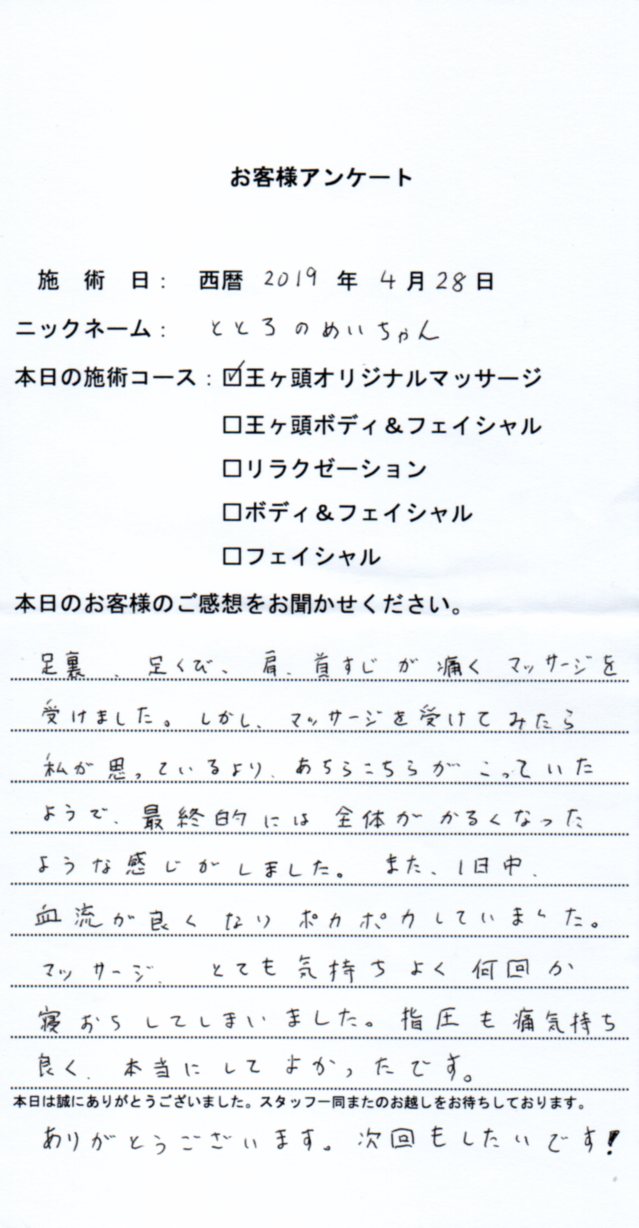 お客様アンケート
施術日： 西暦 2019 年 4月28日
ニックネーム： ととろのめいちゃん
本日の施術コース：☑王ヶ頭オリジナルマッサージ
□王ヶ頭ボディ＆フェイシャル
□リラクゼーション
□ボディ＆フェイシャル
□フェイシャル
本日のお客様のご感想をお聞かせください。
足裏、足くび、肩、首すじが痛くマッサージを
受けました。しかし、マッサージを受けてみたら
私が思っているより、あちらこちらがこっていた
ようで、最終的には全体がかるくなった
ような感じがしました。また、1日中、
血流が良くなりポカポカしていました。
マッサージ、とても気持ちよく何回か
寝おちしてしまいました。指圧も痛気持ち
良く、本当にしてよかったです。
本日は誠にありがとうございました。スタッフ一同またのお越しをお待ちしております。
ありがとうございます。次回もしたいです!